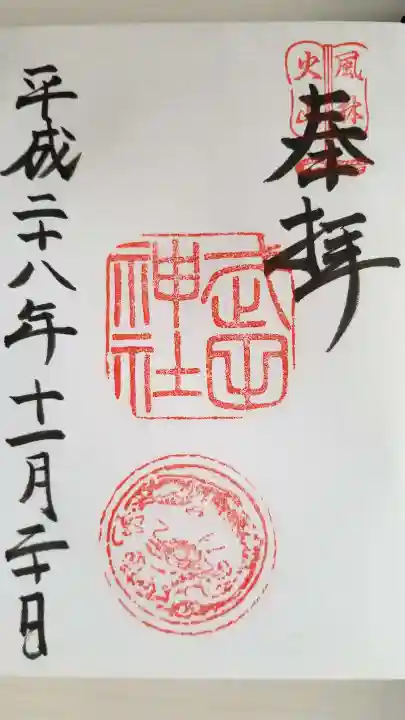 風林
火山
奉拝
武田
神社
平成二十八年十一月二十日